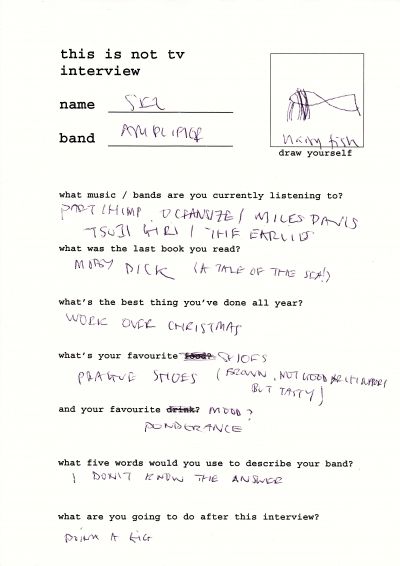 this is not tv
interview
name SEL
band AMPLIFIER
hairy fish
draw yourself
what music / bands are you currently listening to?
PART CHIMP, OCEANSIZE / MILES DAVIS
TSUJI GIRI / THE EARLIES
what was the last book you read?
MOBY DICK (A TALE OF THE SEA!)
what's the best thing you've done all year?
WORK OVER CHRISTMAS
what's your favourite food? SHOES
PRAGUE SHOES (BROWN, NOT GOOD
BUT TASTY)
and your favourite drink? MOOD?
PONDERANCE
what five words would you use to describe your band?
I DON'T KNOW THE ANSWER
what are you going to do after this interview?
DOING A GIG